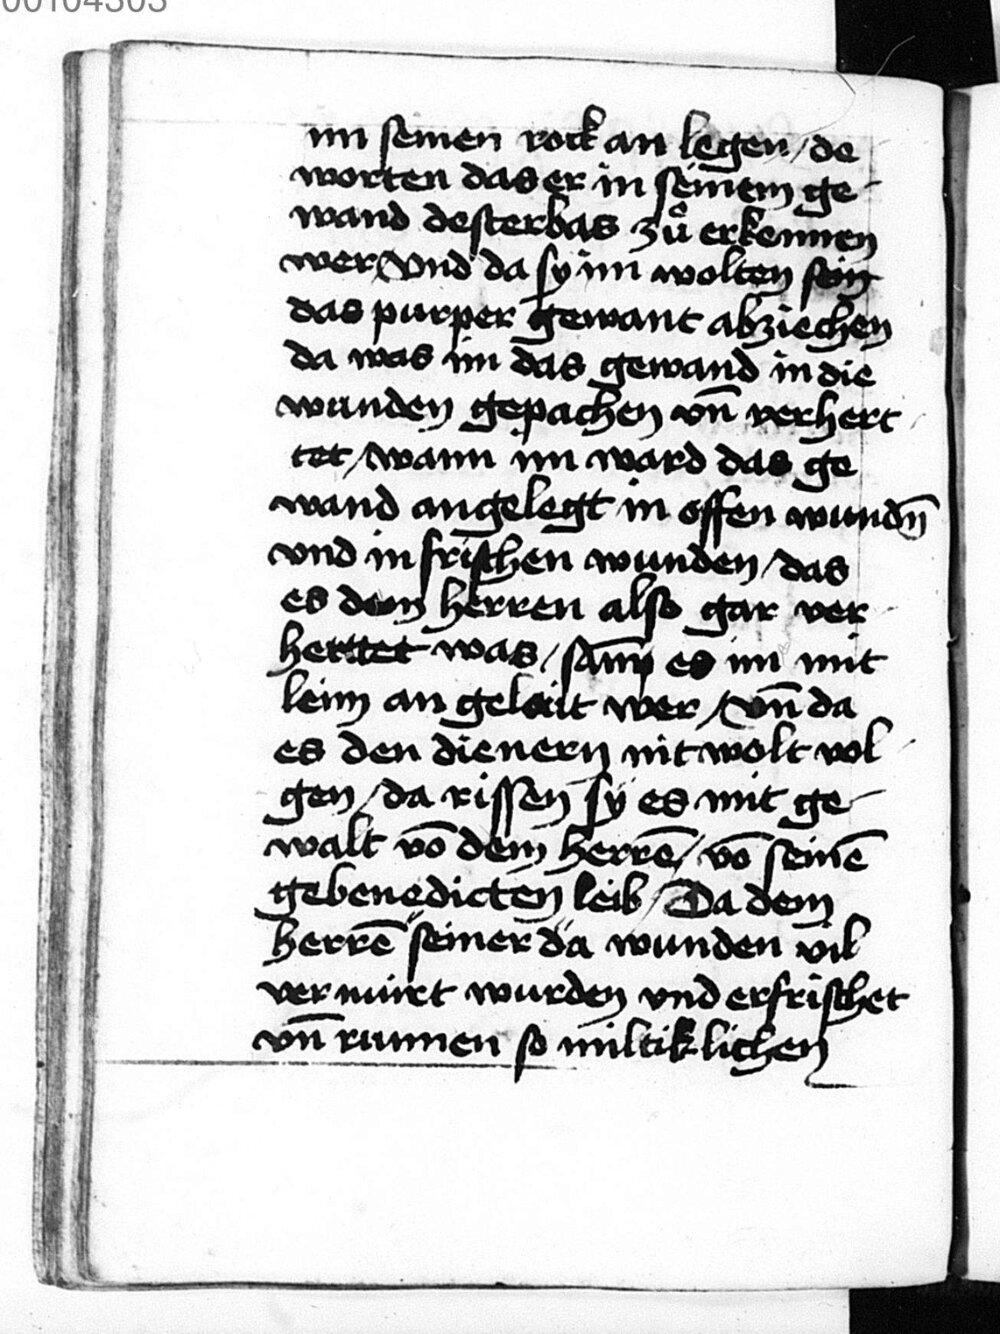 im seinen rock an legen / de
worten das er in seinem ge-
wand desterbas zuͦ erkennen
wer / Vnd da sy im wolten sein
das purper gewant abziechen
da was im das gewand in die
wunden gepachen vn̄ verhert
tet / wann im ward das ge
wand angelegt in offen wundn̄
vnd in frischen wunden / das
es dem herren also gar ver
herttet was / sam es im mit
leim an geleit wer / Vn̄ da
es den dienern nit wolt vol
gen / da rissen sy es mit ge-
walt vō dem herrē / vō seinē
gebenedicten leib / Da dem
herrē seiner da wunden vil
vernúrt wurden vnd erfrischet
vn̄ runnen so miltiklichen